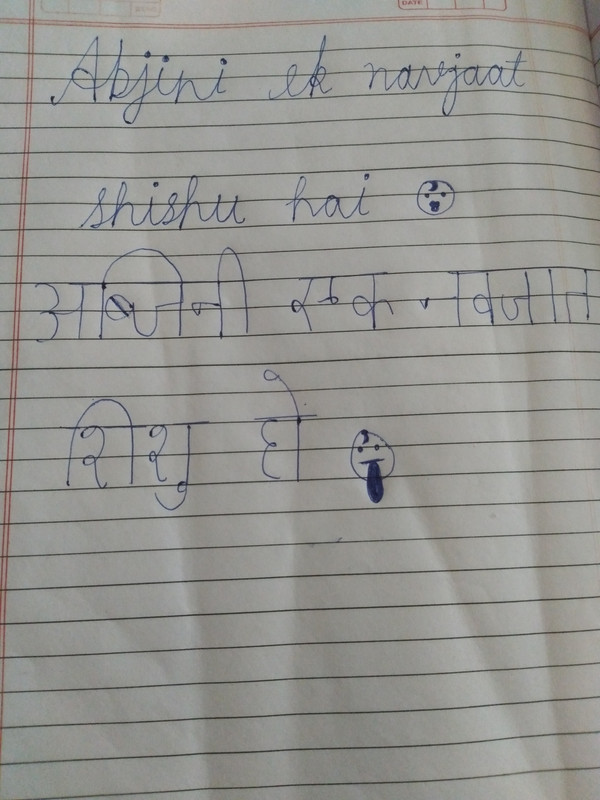 DATE
Abjini ek navjaat
shishu hai
अब्जिनी एक नवजात
शिशु है